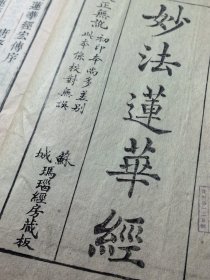 正無訛初印本尚多差別
此本係校對無誤
妙法蓮華經
蘇
城瑪瑙經房藏板
蓮華經宏傳序